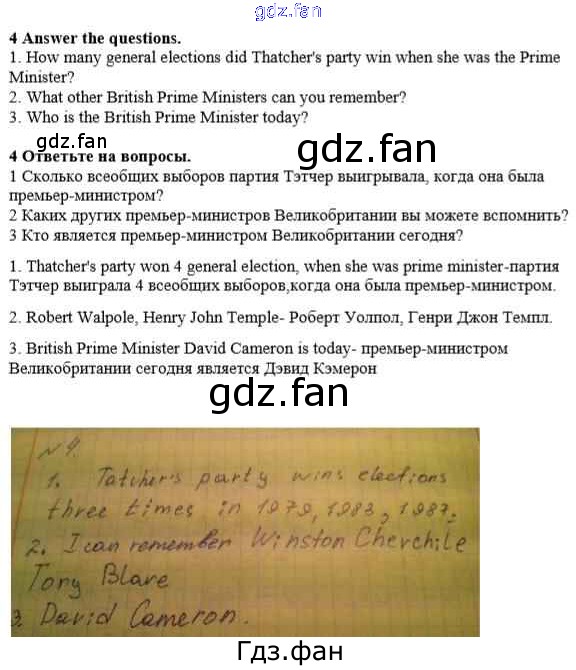 gdz.fan
4 Answer the questions.
1. How many general elections did Thatcher's party win when she was the Prime
Minister?
2. What other British Prime Ministers can you remember?
3. Who is the British Prime Minister today?
gdz.fan
gdz.fan
4 Ответьте на вопросы.
1 Сколько всеобщих выборов партия Тэтчер выигрывала, когда она была
премьер-министром?
2 Каких других премьер-министров Великобритании вы можете вспомнить?
3 Кто является премьер-министром Великобритании сегодня?
1. Thatcher's party won 4 general election, when she was prime minister-партия
Тэтчер выиграла 4 всеобщих выборов,когда она была премьер-министром.
2. Robert Walpole, Henry John Temple- Роберт Уолпол, Генри Джон Темпл.
3. British Prime Minister David Cameron is today- премьер-министром
Великобритании сегодня является Дэвид Кэмерон
gdz.fan
№ 4.
1. Tatcher's party wins elections
three times in 1979, 1983, 1987.
2. I can remember Winston Cherchile
Tony Blare
3. David Cameron.
Гдз.фан